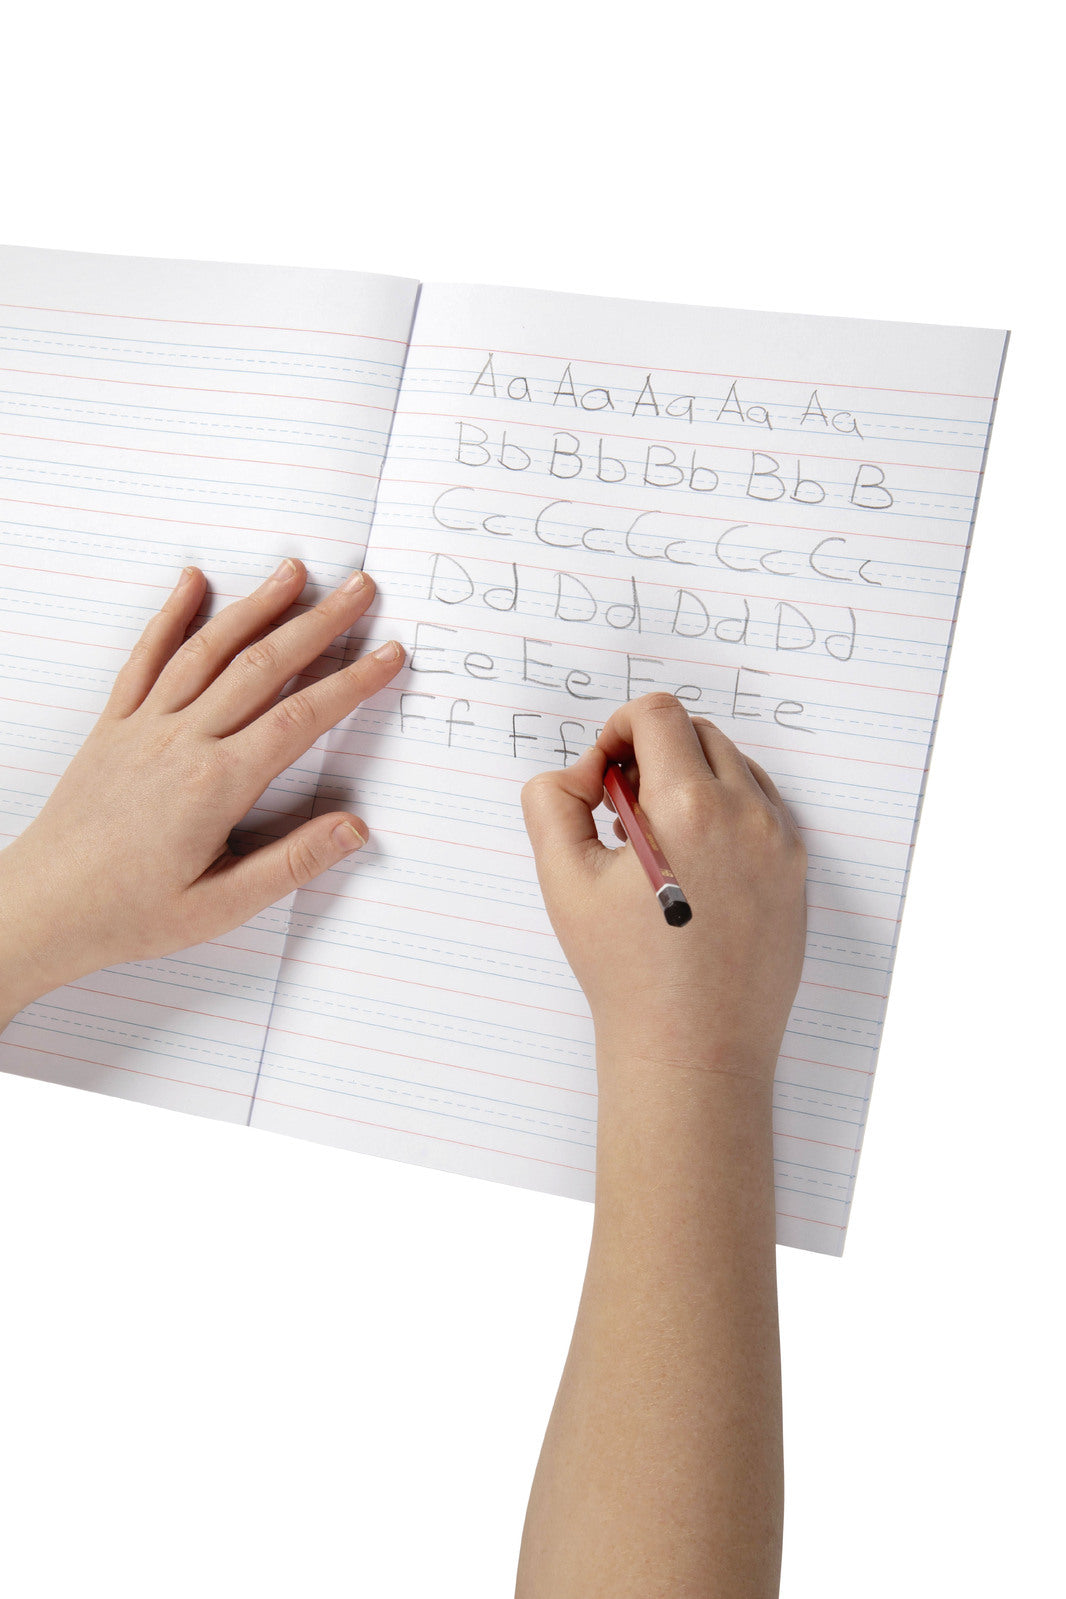 Aa Aa Aa Aa Aa
Bb Bb Bb Bb B
Cc Cc Cc Cc Cc
Dd Dd Dd Dd
Ee Ee Ee Ee
Ff Ff